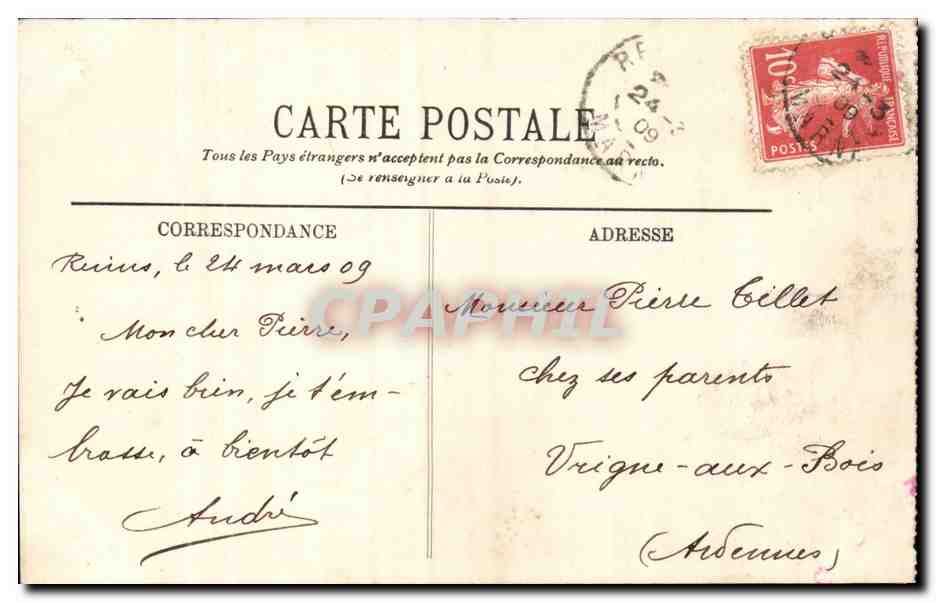 CARTE POSTALE
Tous les Pays étrangers n'acceptent pas la Correspondance au recto.
(Se renseigner à la Poste).
CORRESPONDANCE
Reims, le 24 mars 09
Mon cher Pierre,
Je vais bien, je t'em-
brasse, à bientôt
André
ADRESSE
Monsieur Pierre Tillet
chez ses parents
Vrigne-aux-Bois
(Ardennes)
RÉPUBLIQUE FRANÇAISE
10c
POSTES
24 - 3
09
CPAPHIL